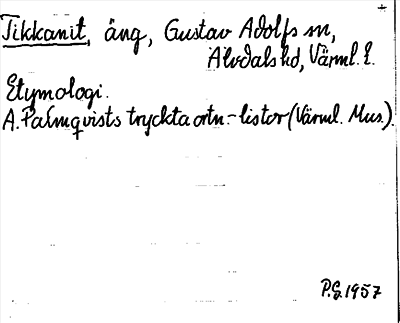 +
Tikkanit, äng, Gustav Adolfs sn,
Älvdals hd, Värml. l.
Etymologi.
A. Palmqvists tryckta ortn.-listor (Värml. Mus.).
P.G. 1957